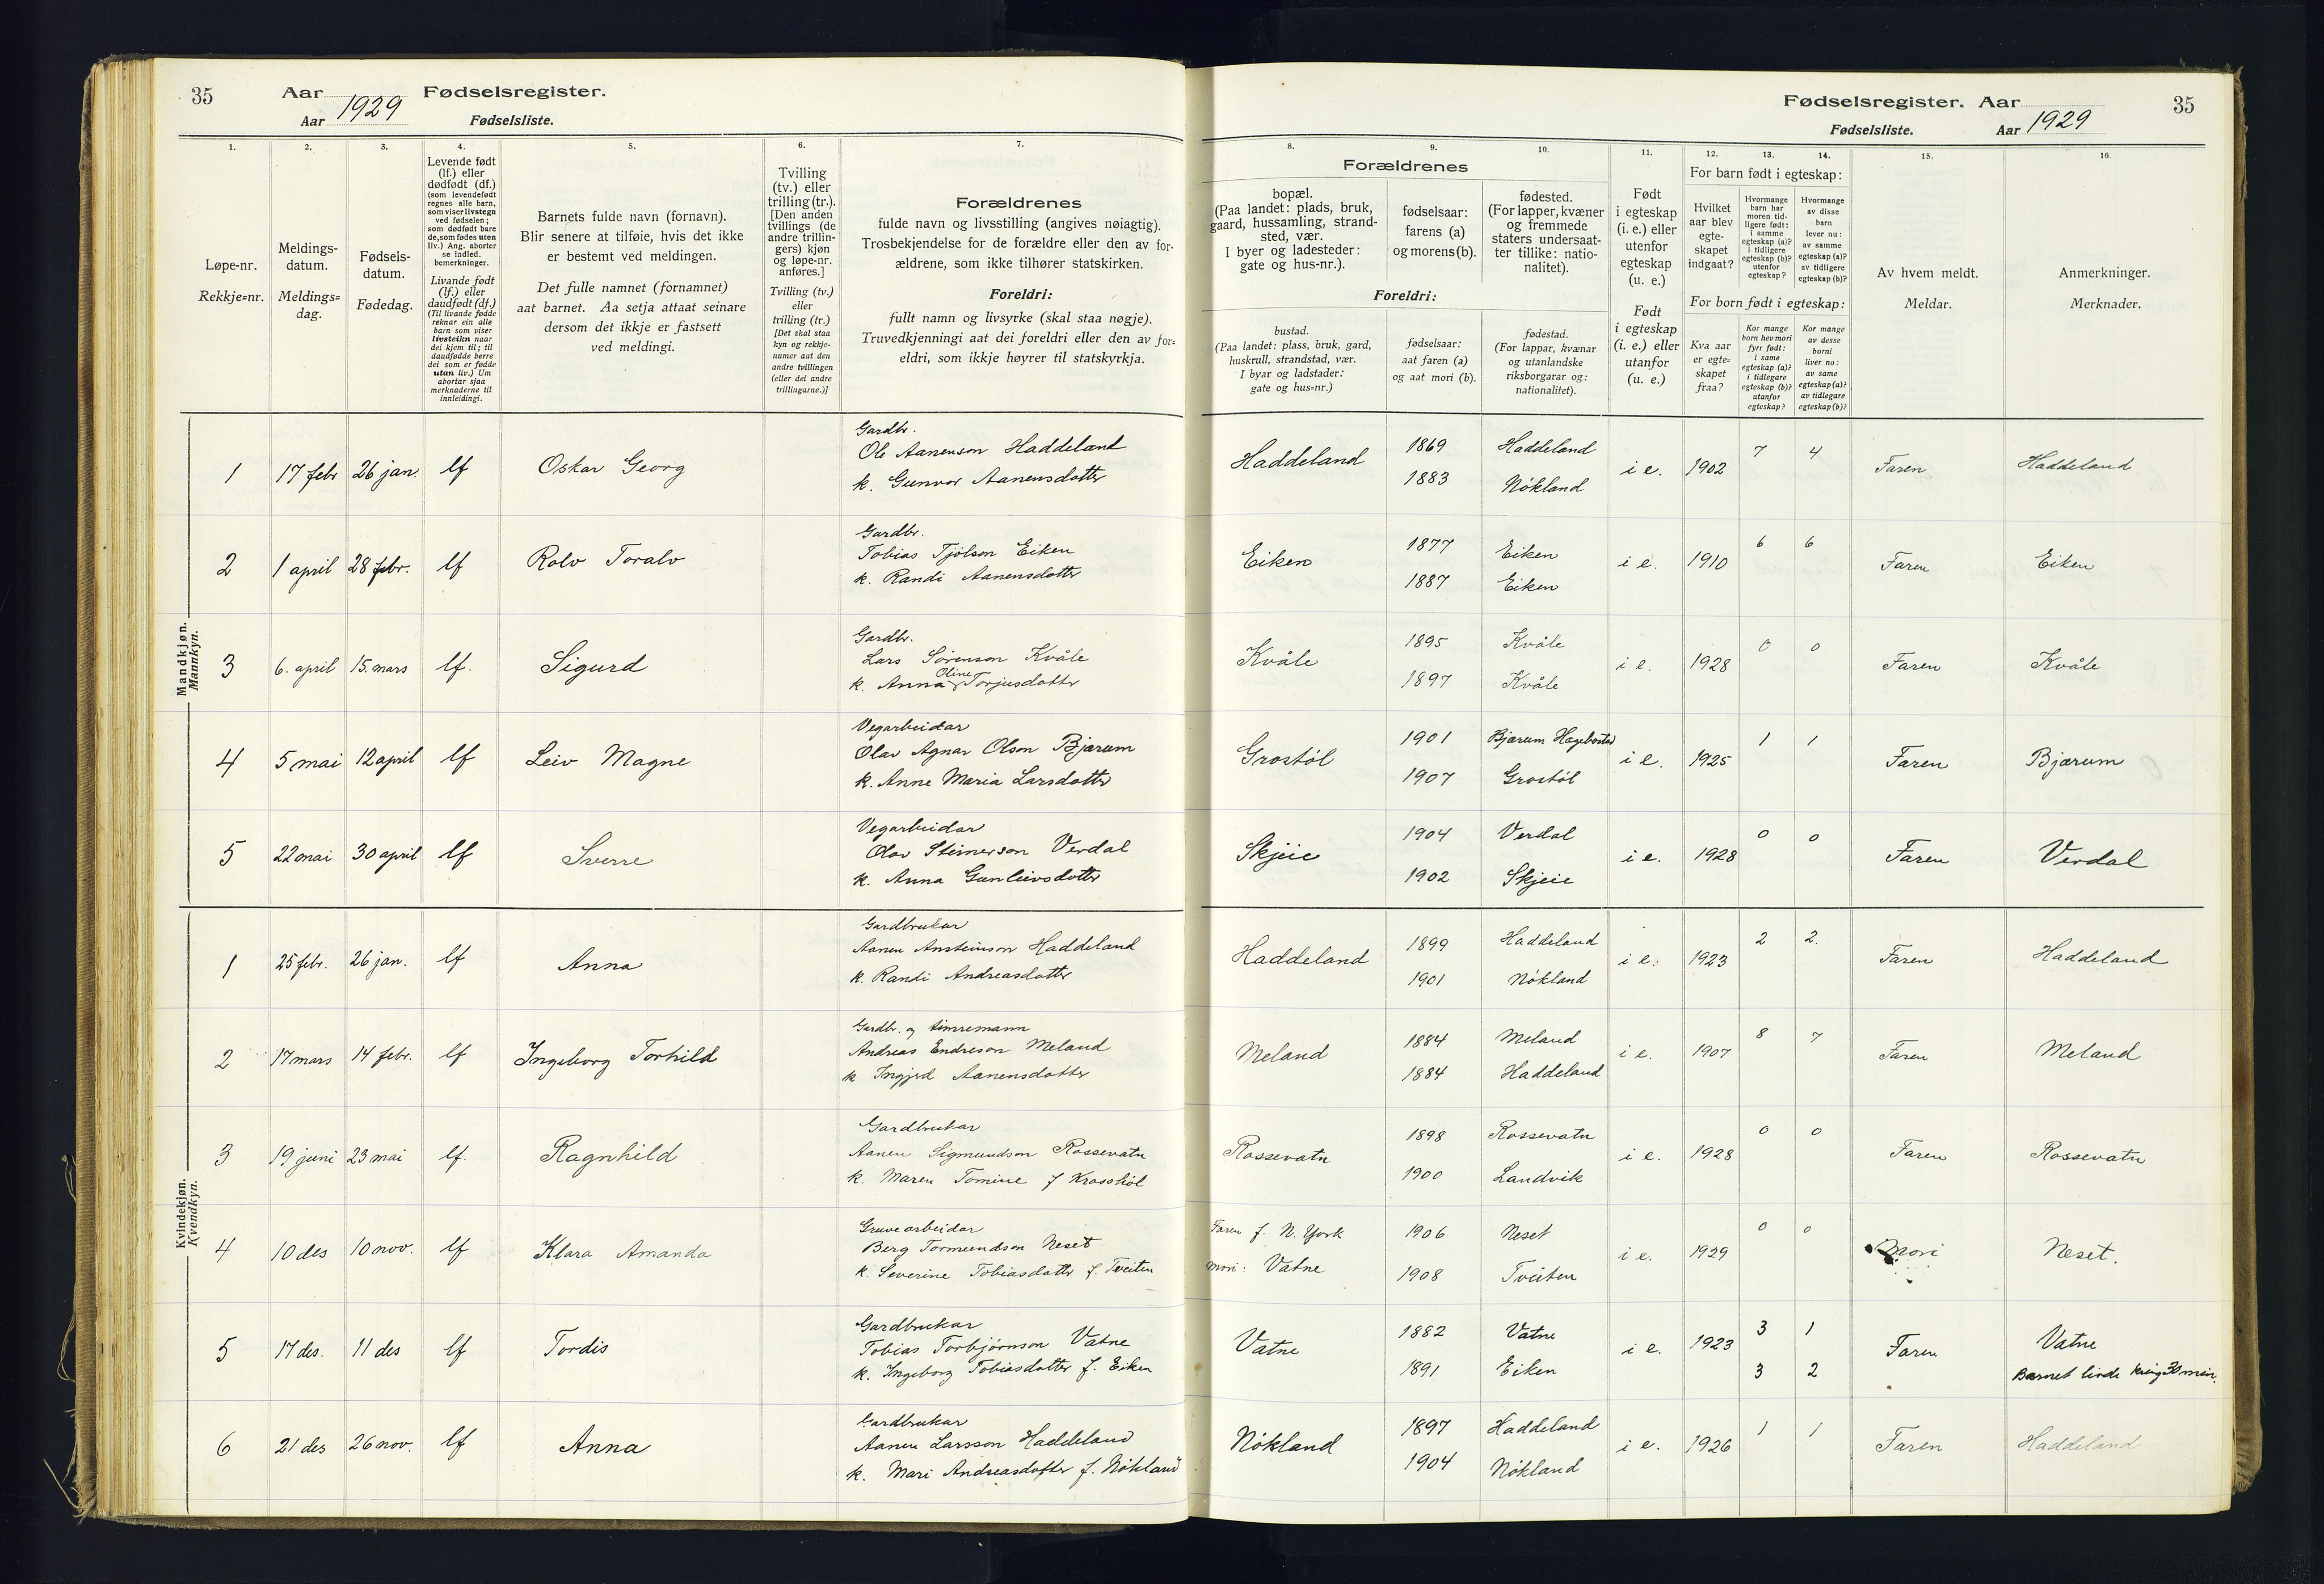 35
Aar
Fødselsregister.
Aar 1929
Fødselsliste.
1.
2.
3.
4.
5.
6.
7.
Løpe-nr.
Rekkje=nr.
Meldings-
datum.
Meldings=
dag.
Fødsels-
datum.
Fødedag.
Levende født
(lf.) eller
dødfødt (df.)
(som levendefødt
regnes alle barn,
som viser livstegn
ved fødselen;
som dødfødt bare
de, som fødes uten
liv.) Ang. aborter
se indled.
bemerkninger.
Livande født
(lf.) eller
daudfødt (df.)
(Til livande fødde
reknar ein alle
barn som viser
livsteikn naar
dei kjem til; til
daudfødde berre
dei som er fødde
utan liv.) Um
abortar sjaa
merknaderne til
innleidingi.
Barnets fulde navn (fornavn).
Blir senere at tilføie, hvis det ikke
er bestemt ved meldingen.
Det fulle namnet (fornamnet)
aat barnet. Aa setja attaat seinare
dersom det ikkje er fastsett
ved meldingi.
Tvilling
(tv.) eller
trilling (tr.).
[Den anden
tvillings (de
andre trillin-
gers) kjøn
og løpe-nr.
anføres.]
Tvilling (tv.)
eller
trilling (tr.)
[Det skal staa
kyn og rekkje-
numer aat den
andre tvillingen
(eller dei andre
trillingarne.)]
Forældrenes
fulde navn og livsstilling (angives nøiagtig).
Trosbekjendelse for de forældre eller den av for-
ældrene, som ikke tilhører statskirken.
Foreldri:
fullt namn og livsyrke (skal staa nøgje).
Truvedkjenningi aat dei foreldri eller den av for=
eldri, som ikkje høyrer til statskyrkja.
Mandkjøn.
Mannkyn.
1 17 febr 26 jan. lf Oskar Georg
Gardbr.
Ole Aanenson Haddeland
k. Gunvor Aanensdotter
2 1 april 28 febr. lf Rolv Toralv
Gardbr.
Tobias Tjølson Eiken
k. Randi Aanensdotter
3 6. april 15. mars lf. Sigurd
Gardbr.
Lars Sørenson Kvåle
k. Anna Oline Torjusdotter
4 5 mai 12 april lf Leiv Magne
Vegarbeidar
Olav Agnar Olson Bjærum
k. Anne Maria Larsdotter
5 22 mai 30 april lf Sverre
Vegarbeidar
Olav Steinerson Verdal
k. Anna Gunleivsdotter
Kvindekjøn.
Kvendkyn.
1 25 febr. 26 jan. lf Anna
Gardbrukar
Aanen Ansteinson Haddeland
k. Randi Andreasdotter
2 17 mars 14 febr. lf Ingeborg Torhild
Gardbr. og timremann
Andreas Endreson Meland
k Ingjrd Aanensdotter
3 19 juni 23 mai lf. Ragnhild
Gardbrukar
Aanen Sigmundson Rossevatn
k. Maren Tomine f
4 10 des 10 nov. lf Klara Amanda
Gruvearbeidar
Berg Tormundson Neset
k. Severine Tobiasdotter f. Tveiten
5 17 des. 11 des lf Tordis
Gardbrukar
Tobias Torbjørnson Vatne
k. Ingeborg Tobiasdotter f. Eiken
6 21 des 26 nov. lf Anna
Gardbrukar
Aanen Larsson Haddeland
k. Mari Andreasdotter f. Nökland
Fødselsregister. Aar
35
Fødselsliste.
Aar 1929
8.
9.
10.
11.
12.
13.
14.
15.
16.
Forældrenes
bopæl.
(Paa landet: plads, bruk,
gaard, hussamling, strand-
sted, vær.
I byer og ladesteder:
gate og hus-nr.).
fødselsaar:
farens (a)
og morens (b).
fødested.
(For lapper, kvæner
og fremmede
staters undersaat-
ter tillike: natio-
nalitet).
Foreldri:
bustad.
(Paa landet: plass, bruk, gard,
huskrull, strandstad, vær.
I byar og ladstader:
gate og hus=nr.)
fødselsaar:
aat faren (a)
og aat mori (b).
fødestad.
(For lappar, kvænar
og utanlandske
riksborgarar og:
nationalitet).
Født
i egteskap
(i. e.) eller
utenfor
egteskap
(u. e.)
Født
i egteskap
(i. e.) eller
utanfor
egteskap
(u. e.)
For barn født i egteskap:
Hvilket
aar blev
egte-
skapet
indgaat?
Hvormange
barn har
moren tid-
ligere født:
i samme
egteskap (a)?
i tidligere
egteskap (b)?
utenfor
egteskap?
Hvormange
av disse
barn
lever nu:
av samme
egteskap (a)?
av tidligere
egteskap (b)?
For born født i egteskap:
Kva aar
er egte=
skapet
fraa?
Kor mange
born hev mori
fyrr født:
i same
egteskap (a)?
i tidlegare
egteskap (b)?
utanfor
egteskap?
Kor mange
av desse
borni
liver no:
av same
egteskap (a)?
av tidlegare
egteskap (b)?
Av hvem meldt.
Meldar.
Anmerkninger.
Merknader.
Haddeland 1869 Haddeland i e. 1902 7 4 Faren Haddeland
1883 Nökland
Eiken 1877 Eiken i e. 1910 6 6 Faren Eiken
1887 Eiken
Kvåle 1895 Kvåle i e. 1928 0 0 Faren Kvåle
1897 Kvåle
Grostöl 1901 Bjærum Hægebostad i e. 1925 1 1 Faren Bjærum
1907 Grostöl
Skjeie 1904 Verdal i e. 1928 0 0 Faren Verdal
1902 Skjeie
Haddeland 1899 Haddeland i e. 1923 2 2. Faren Haddeland
1901 Nökland
Meland 1884 Meland i e. 1907 8 7 Faren Meland
1884 Haddeland
Rossevatn 1898 Rossevatn i e. 1928 0 0 Faren Rossevatn
1900 Landvik
Faren f. N. York 1906 Neset i e. 1929 0 0 Mori Neset.
Mori: Vatne 1908 Tveiten
Vatne 1882 Vatne i e. 1923 3 1 Faren Vatne
1891 Eiken 3 2 Barnet livde kring 30 min.
Nökland 1897 Haddeland i e. 1926 1 1 Faren Haddeland
1904 Nökland